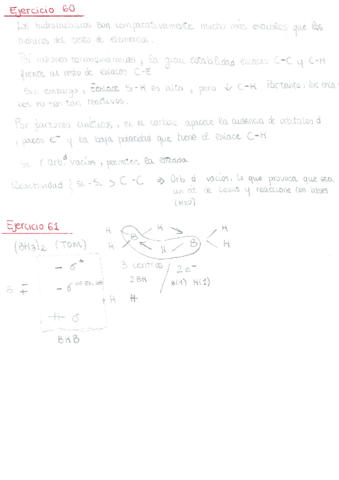 Ejercicio 60
Los hidrocarburos son comparativamente mucho más estables que los
hidruros del resto de elementos.
Por razones termodinámicas, la gran estabilidad enlaces C-C y C-H
frente al resto de enlaces C-E
Sin embargo, Eenlace Si-H es alta, pero ↓ C-H. Por tanto, los
no son tan reactivos.
Por factores cinéticos, en el carbono aparece la ausencia de orbitales d
, pares e⁻ y la baja polaridad que tiene el enlace C-H
Si ↑ orb d vacíos, permiten la entrada
Reactividad { Si-Si > C-C ⇒ Orb d vacíos, lo que provoca que sea
un át de Lewis y reaccione con bases
(H2O)
Ejercicio 61
(BH3)2 (TOM)
H H H
B H B
H H
3 centros / 2e⁻
2BH / B(1) H(1)
σ*
B σ no enlace H
σ
BHB